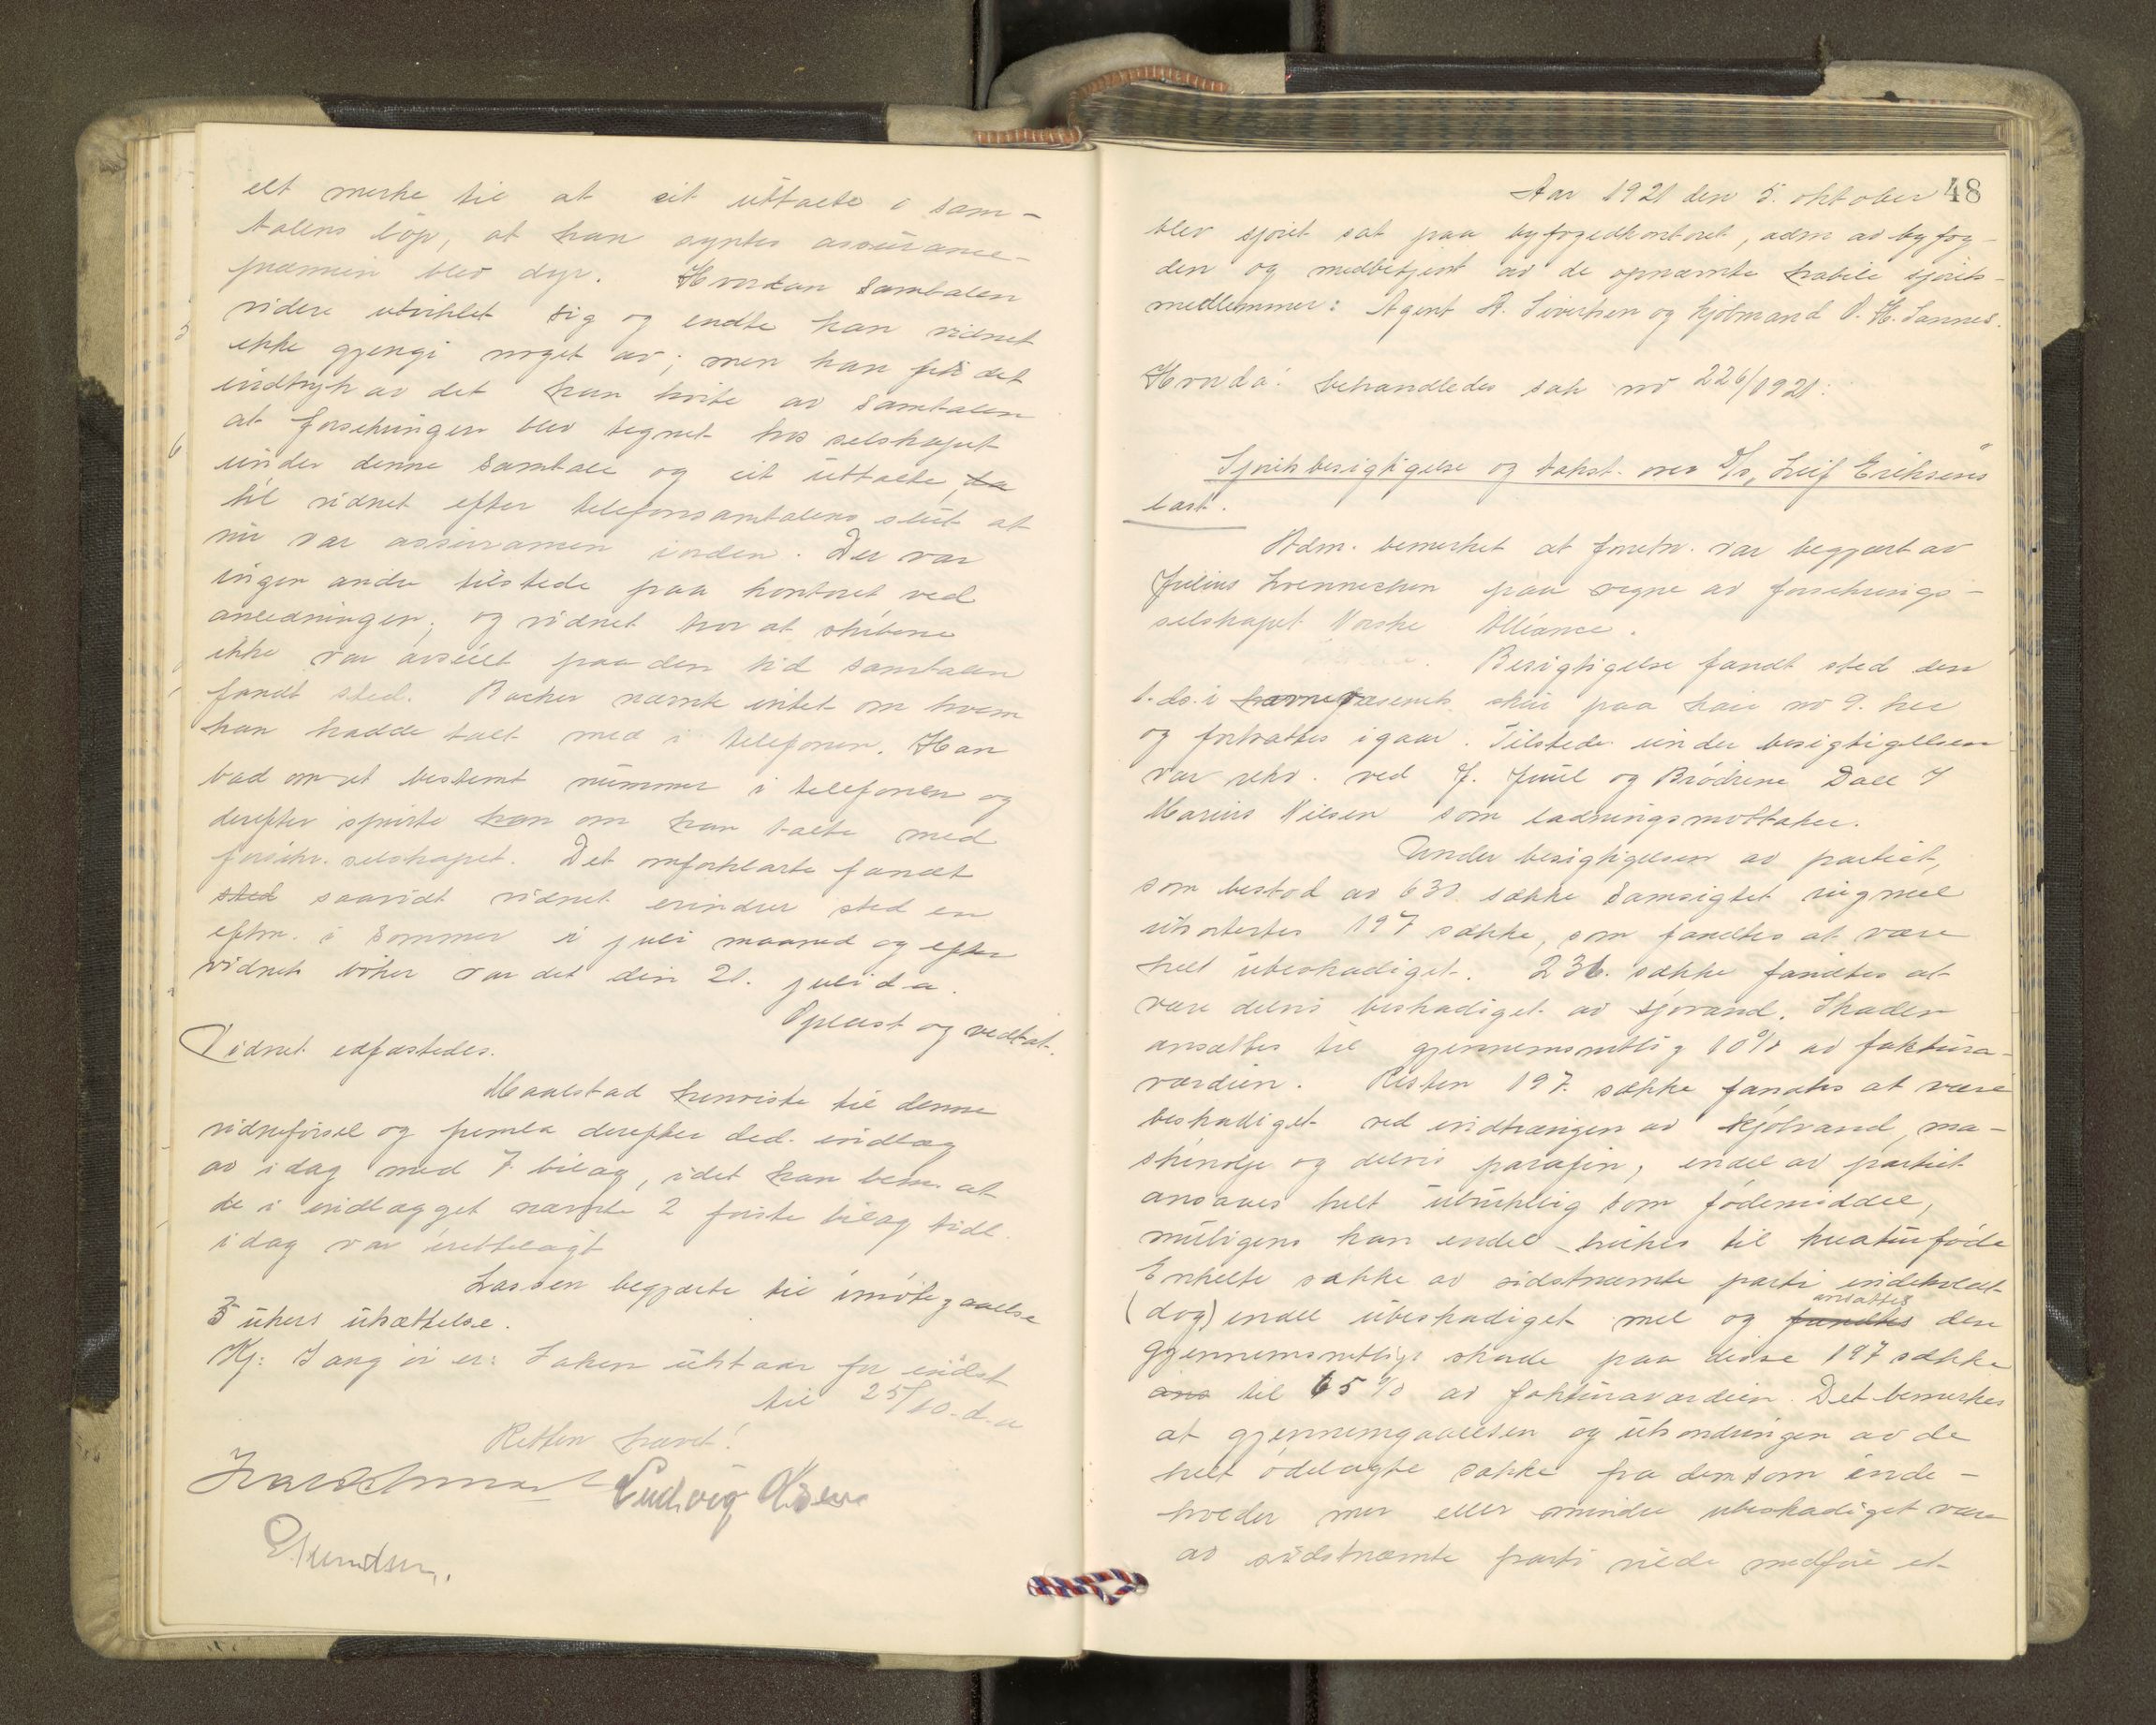 elt merke til at eit uttalte i sam-
talens løp, at han syntes assurance-
præmien blev dyr. Hvordan samtalen
videre utviklet sig og endte kan vidnet
ikke gjengi noget av; men han fik det
indtryk av det han hørte av samtalen
at forsikringen blev tegnet hos selskapet
under denne samtale og eit uttalte, da
til vidnet efter telefonsamtalens slut at
nu var assurancen iorden. Der var
ingen andre tilstede paa kontoret ved
anledningen; og vidnet tror at skibene
ikke var avseilt paa den tid samtalen
fandt sted. Backer nævnte intet om hvem
han hadde talt med i telefonen. Han
bad om et bestemt nummer i telefonen og
derefter spurte han om han talte med
forsikr. selskapet. Det omforklarte fandt
sted saavidt vidnet erindrer sted en
eftm. i sommer i juli maaned og efter
vidnets bøker var det den 21. juli d.a.
Oplæst og vedtat.
Vidnet edfæstedes.
Maalstad henviste til denne
vidneførsel og fremla derefter ded. indlæg
av idag med 7 bilag, idet han bem. at
de i indlægget nævnte 2 første bilag tidl.
idag var irettelagt
Lassen begjærte til imøtegaaelse
3 ukers utsættelse.
Kj: Sang ør er: Saken utstaar for indst
til 25/10. d.a
Retten hævet!
Ludvig Olsen
E Knudsen.
48
Aar 1921 den 5. oktober
blev sjøret sat paa byfogedkontoret, adm av byfog-
den og medbetjent av de opnævnte habile sjørets-
medlemmer: Agent A. Sivertsen og kjøbmand O. H. Sannes.
Hvorda! behandledes sak no 226/1921:
Sjøretsbesigtigelse og takst over D/s „Leif Eriksens"
last.
Adm. bemerket at forretn. var begjært av
Julius Svennechsen paa vegne av forsikrings-
selskapet Norske Alliance.
Besigtigelse fandt sted den
1. ds. i havnevæsenets skur paa kai no 9. her
og fortsattes igaar. Tilstede under besigtigelsen
var rekv. ved J. Juul og Brødrene Dall I
Marius Nilsen som ladningsmottaker.
Under besigtigelsen av partiet,
som bestod av 630 sække samsigtet rugmel
utsortertes 197 sække, som fandtes at være
helt ubeskadiget. 236. sække fandtes at
være delvis beskadiget av sjøvand. Skaden
ansættes til gjennemsnitlig 10% av faktura-
værdien. Resten 197. sække fandtes at være
beskadiget ved indtrængen av kjølvand, ma-
skinolje og delvis parafin, endel av partiet
ansaaes helt ubrukelig som fødemiddel,
muligens kan endel brukes til kreaturføde
Enkelte sække av sidstnævnte parti indeholdt
(dog) endel ubeskadiget mel og fandtes ansattes den
gjennemsnitlige skade paa disse 197 sække
ans til 65% av fakturaværdien. Det bemerkes
at gjennemgaaelsen og utsondringen av de
helt ødelagte sække fra dem som inde-
holder mer eller mindre ubeskadiget vare
av sidstnævnte parti vilde medføre et